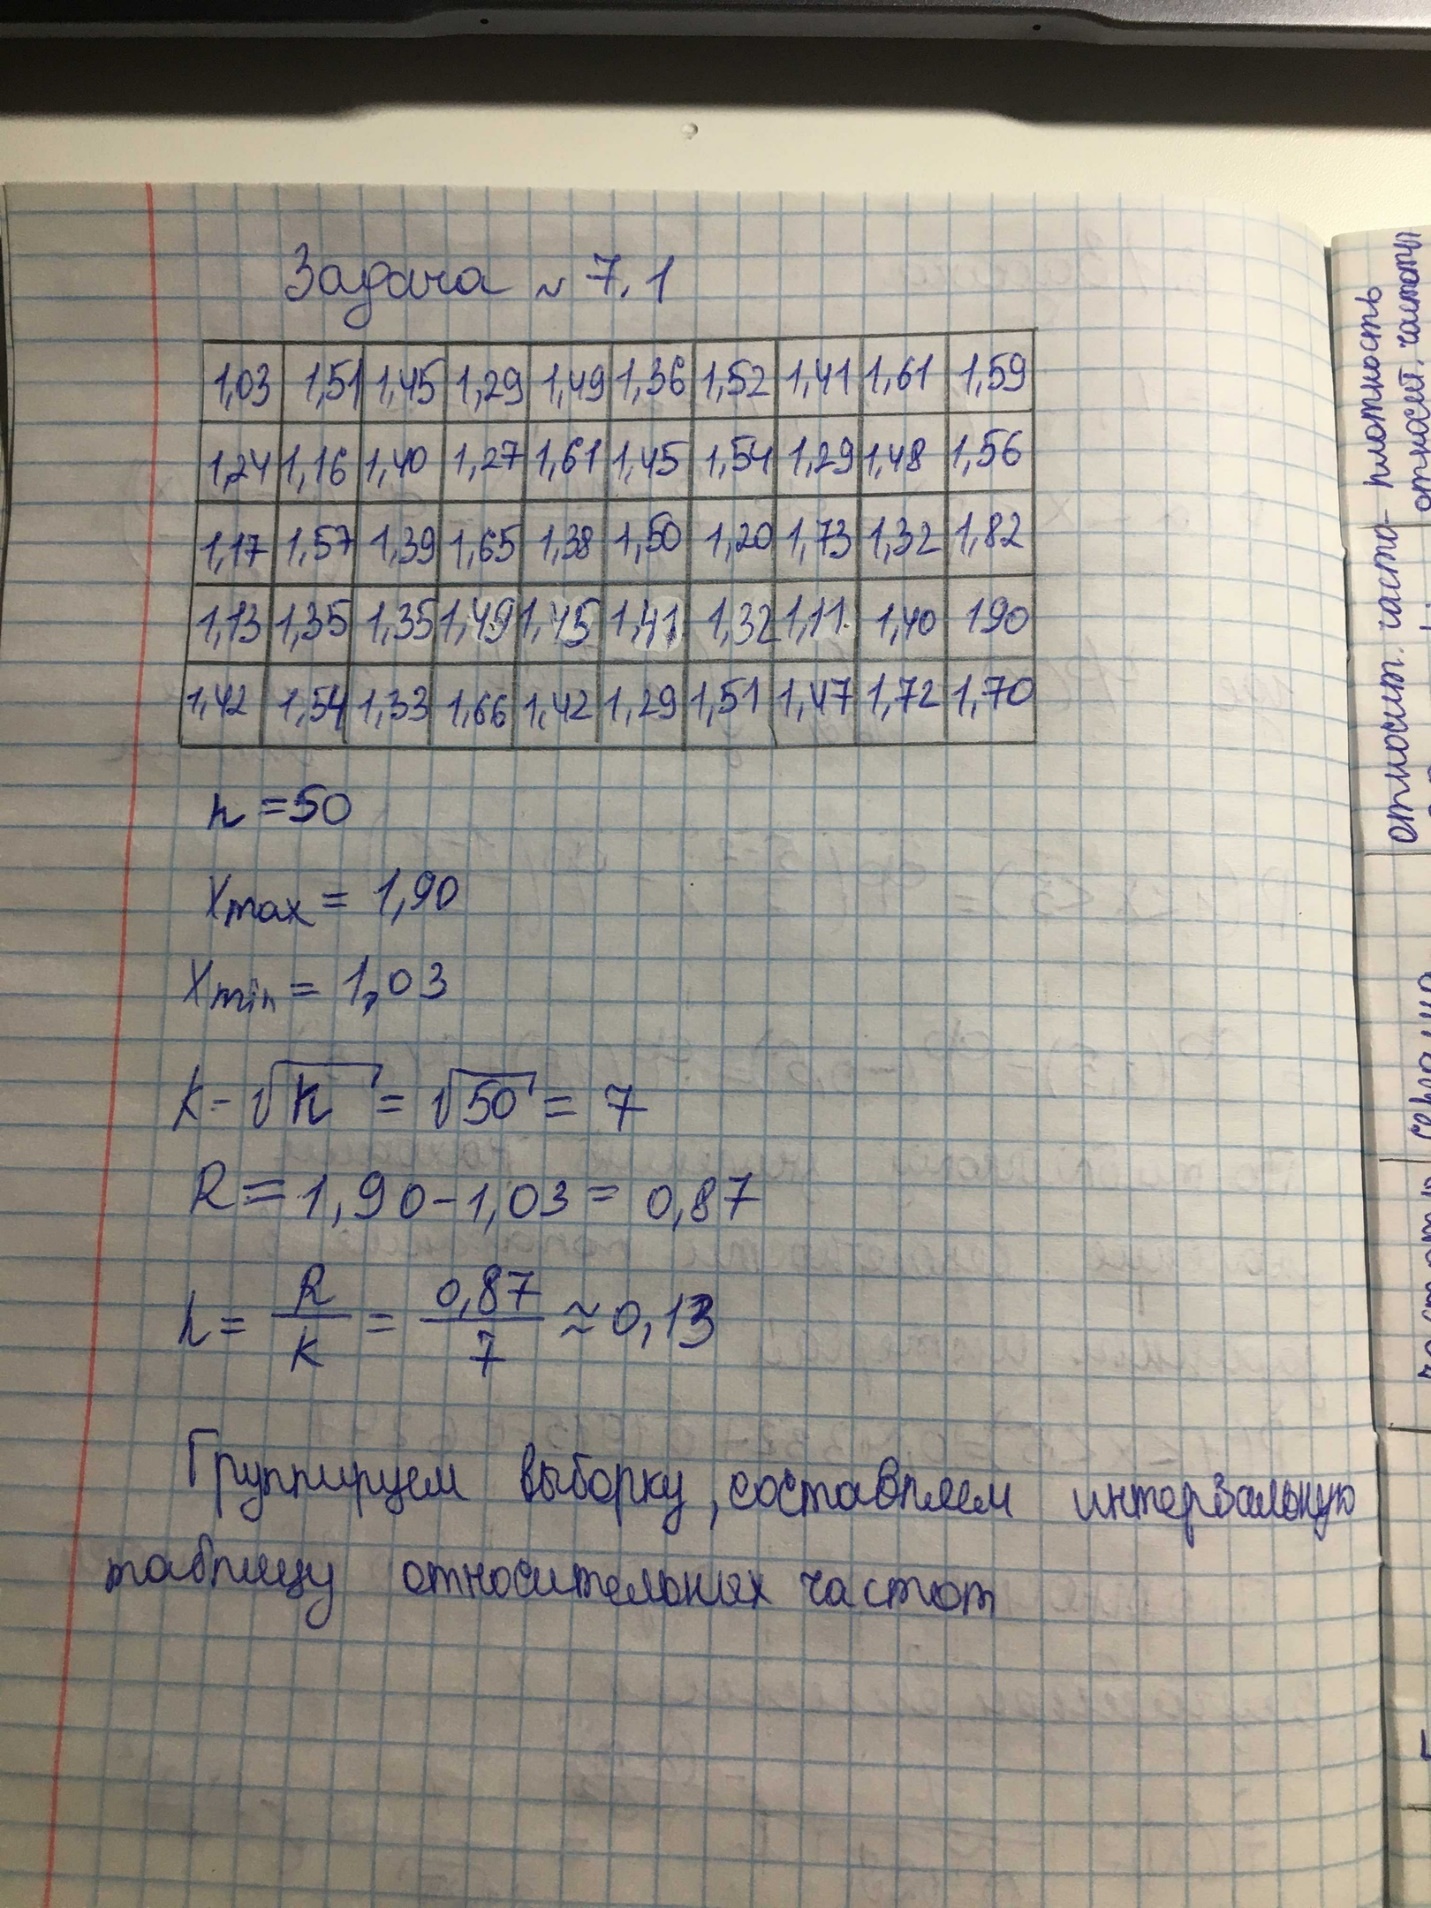 Задача № 7.1
1,03 1,51 1,45 1,29 1,49 1,36 1,52 1,41 1,61 1,59
1,24 1,16 1,40 1,27 1,61 1,45 1,54 1,29 1,48 1,56
1,17 1,57 1,39 1,65 1,38 1,50 1,20 1,73 1,32 1,82
1,13 1,35 1,35 1,49 1,45 1,41 1,32 1,11 1,40 190
1,42 1,54 1,33 1,66 1,42 1,29 1,51 1,47 1,72 1,70
n = 50
Xmax = 1,90
Xmin = 1,03
K = √n = √50 = 7
R = 1,90 - 1,03 = 0,87
h = R/K = 0,87/7 ≈ 0,13
Группируем выборку, составляем интервальную
таблицу относительных частот
относит. часто-
плотность
относит. частоты